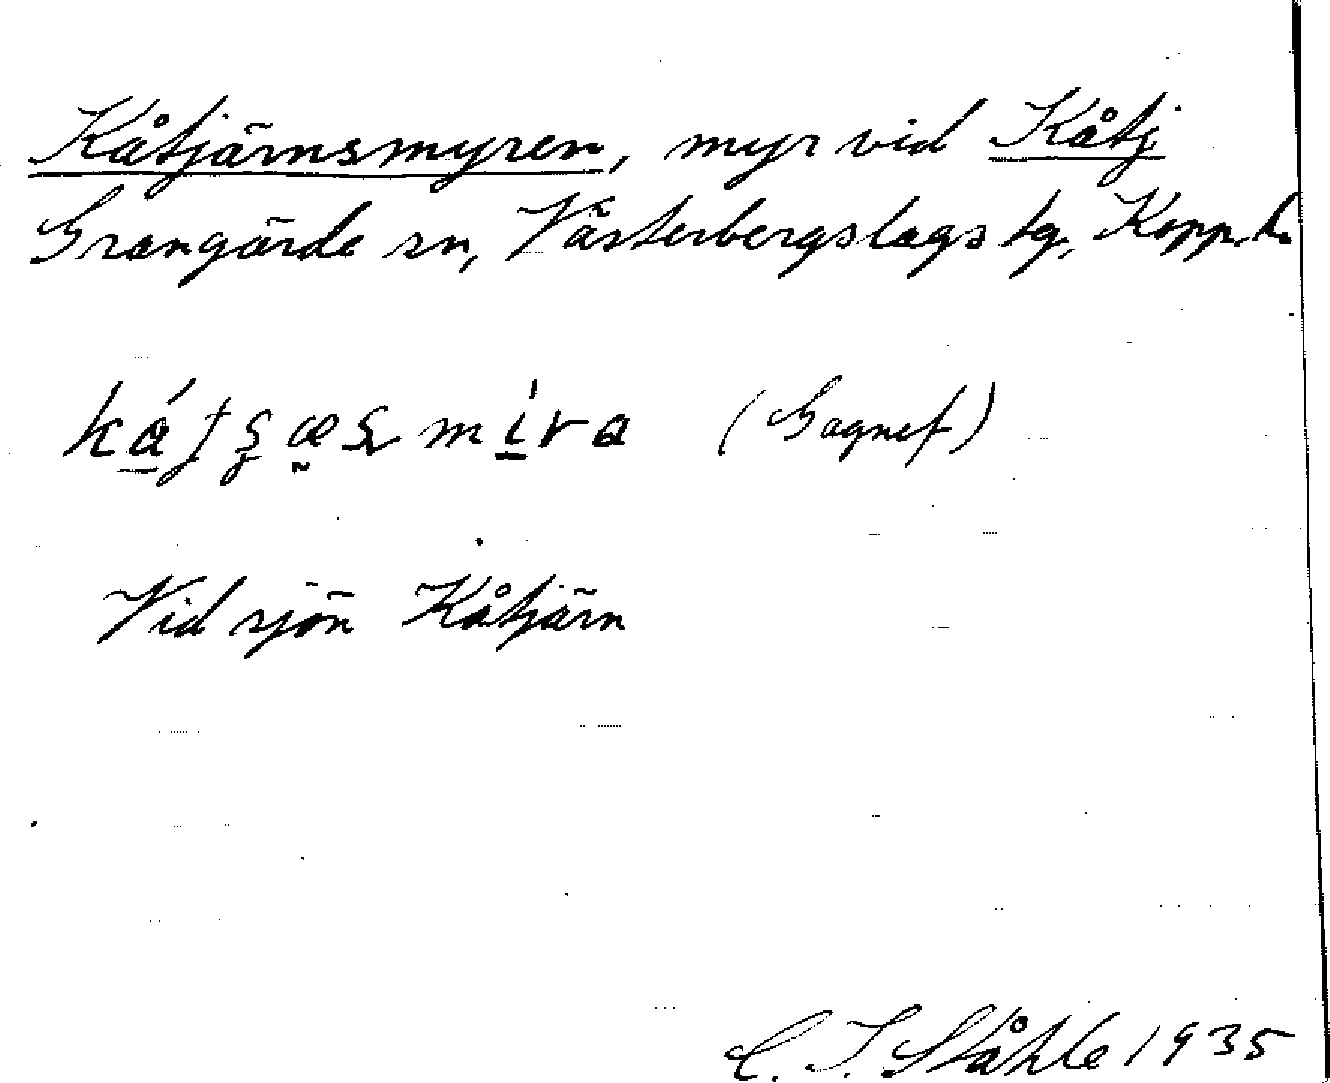 Kåtjärnsmyren, myr vid Kåtj
Grangärde sn, Västerbergslags tg, Kopp. l.
(Gagnef)
Vid sjön Kåtjärn
C. I. Ståhle 1935